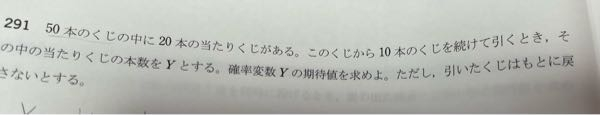 291 50本のくじの中に20本の当たりくじがある。このくじから10本のくじを続けて引くとき,そ
の中の当たりくじの本数をYとする。確率変数Yの期待値を求めよ。ただし,引いたくじはもとに戻
さないとする。